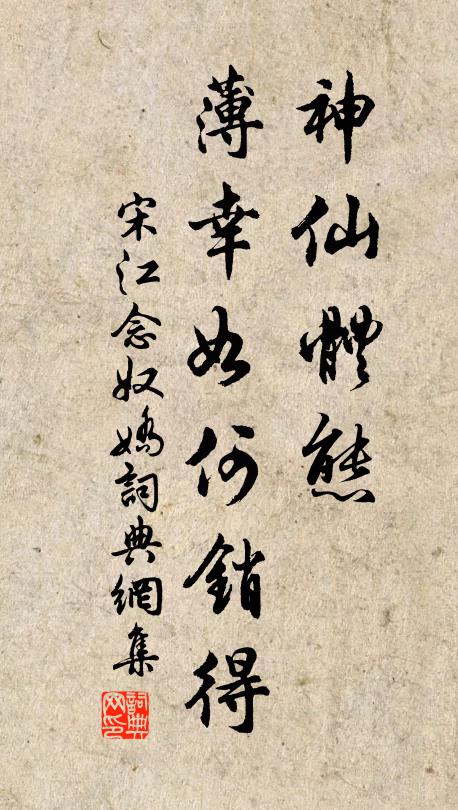 神仙體態
薄幸如何銷得
宋江念奴嬌詞典網集
詞典网印